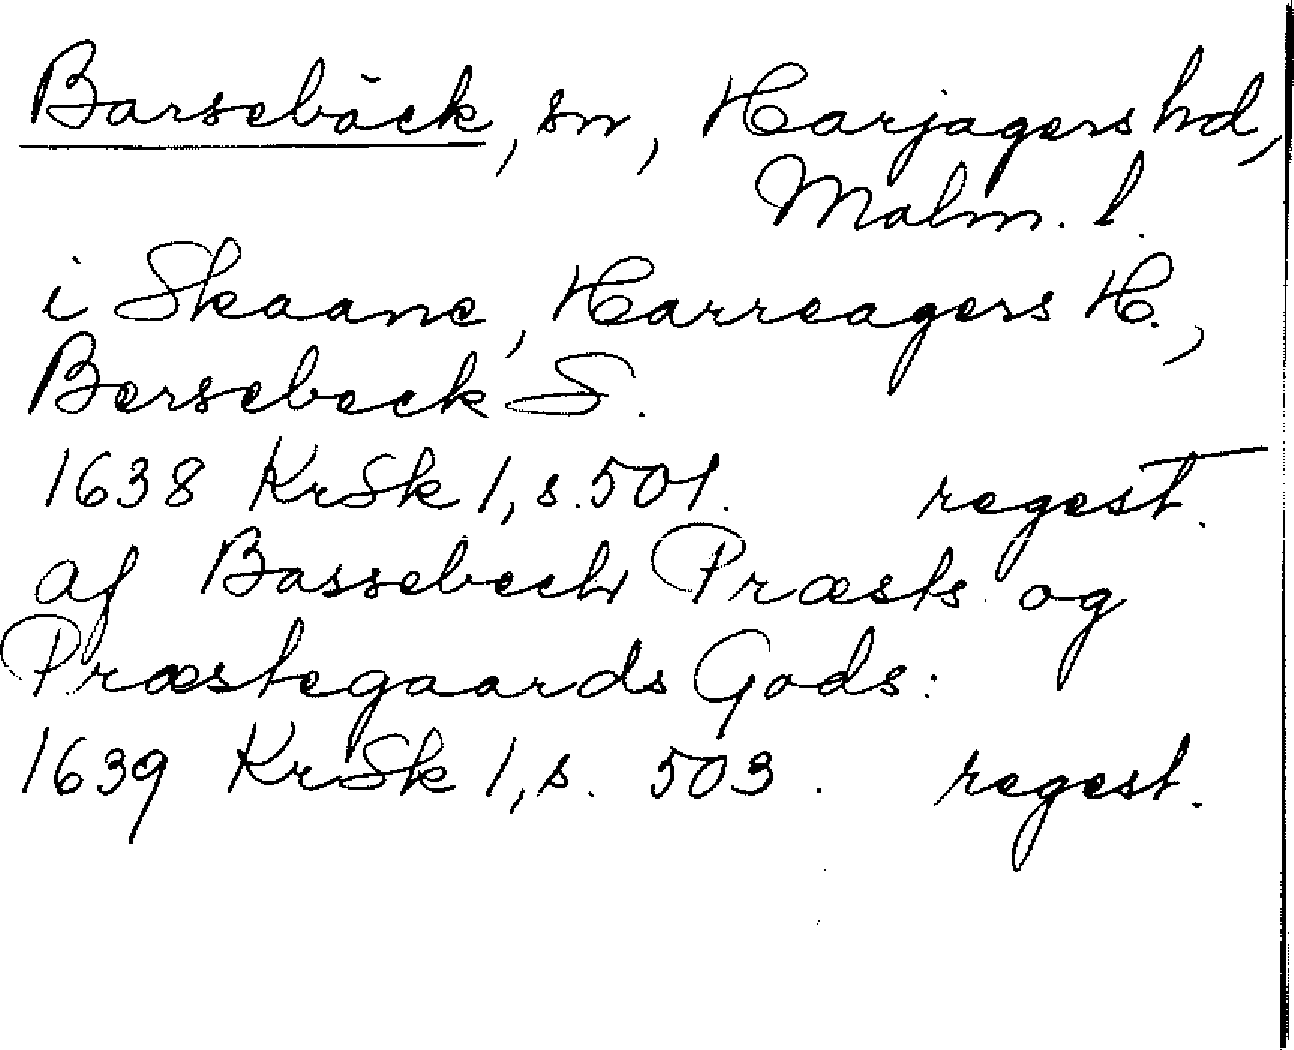 Barsebäck, sn, Harjagers hd,
Malm. l.
i Skaane, Harreagers H.,
Bersebeck S.
1638 KrSk 1, s. 501. regest.
af Bassebech Præsts og
Præstegaards Gods:
1639 KrSk 1, s. 503. regest.